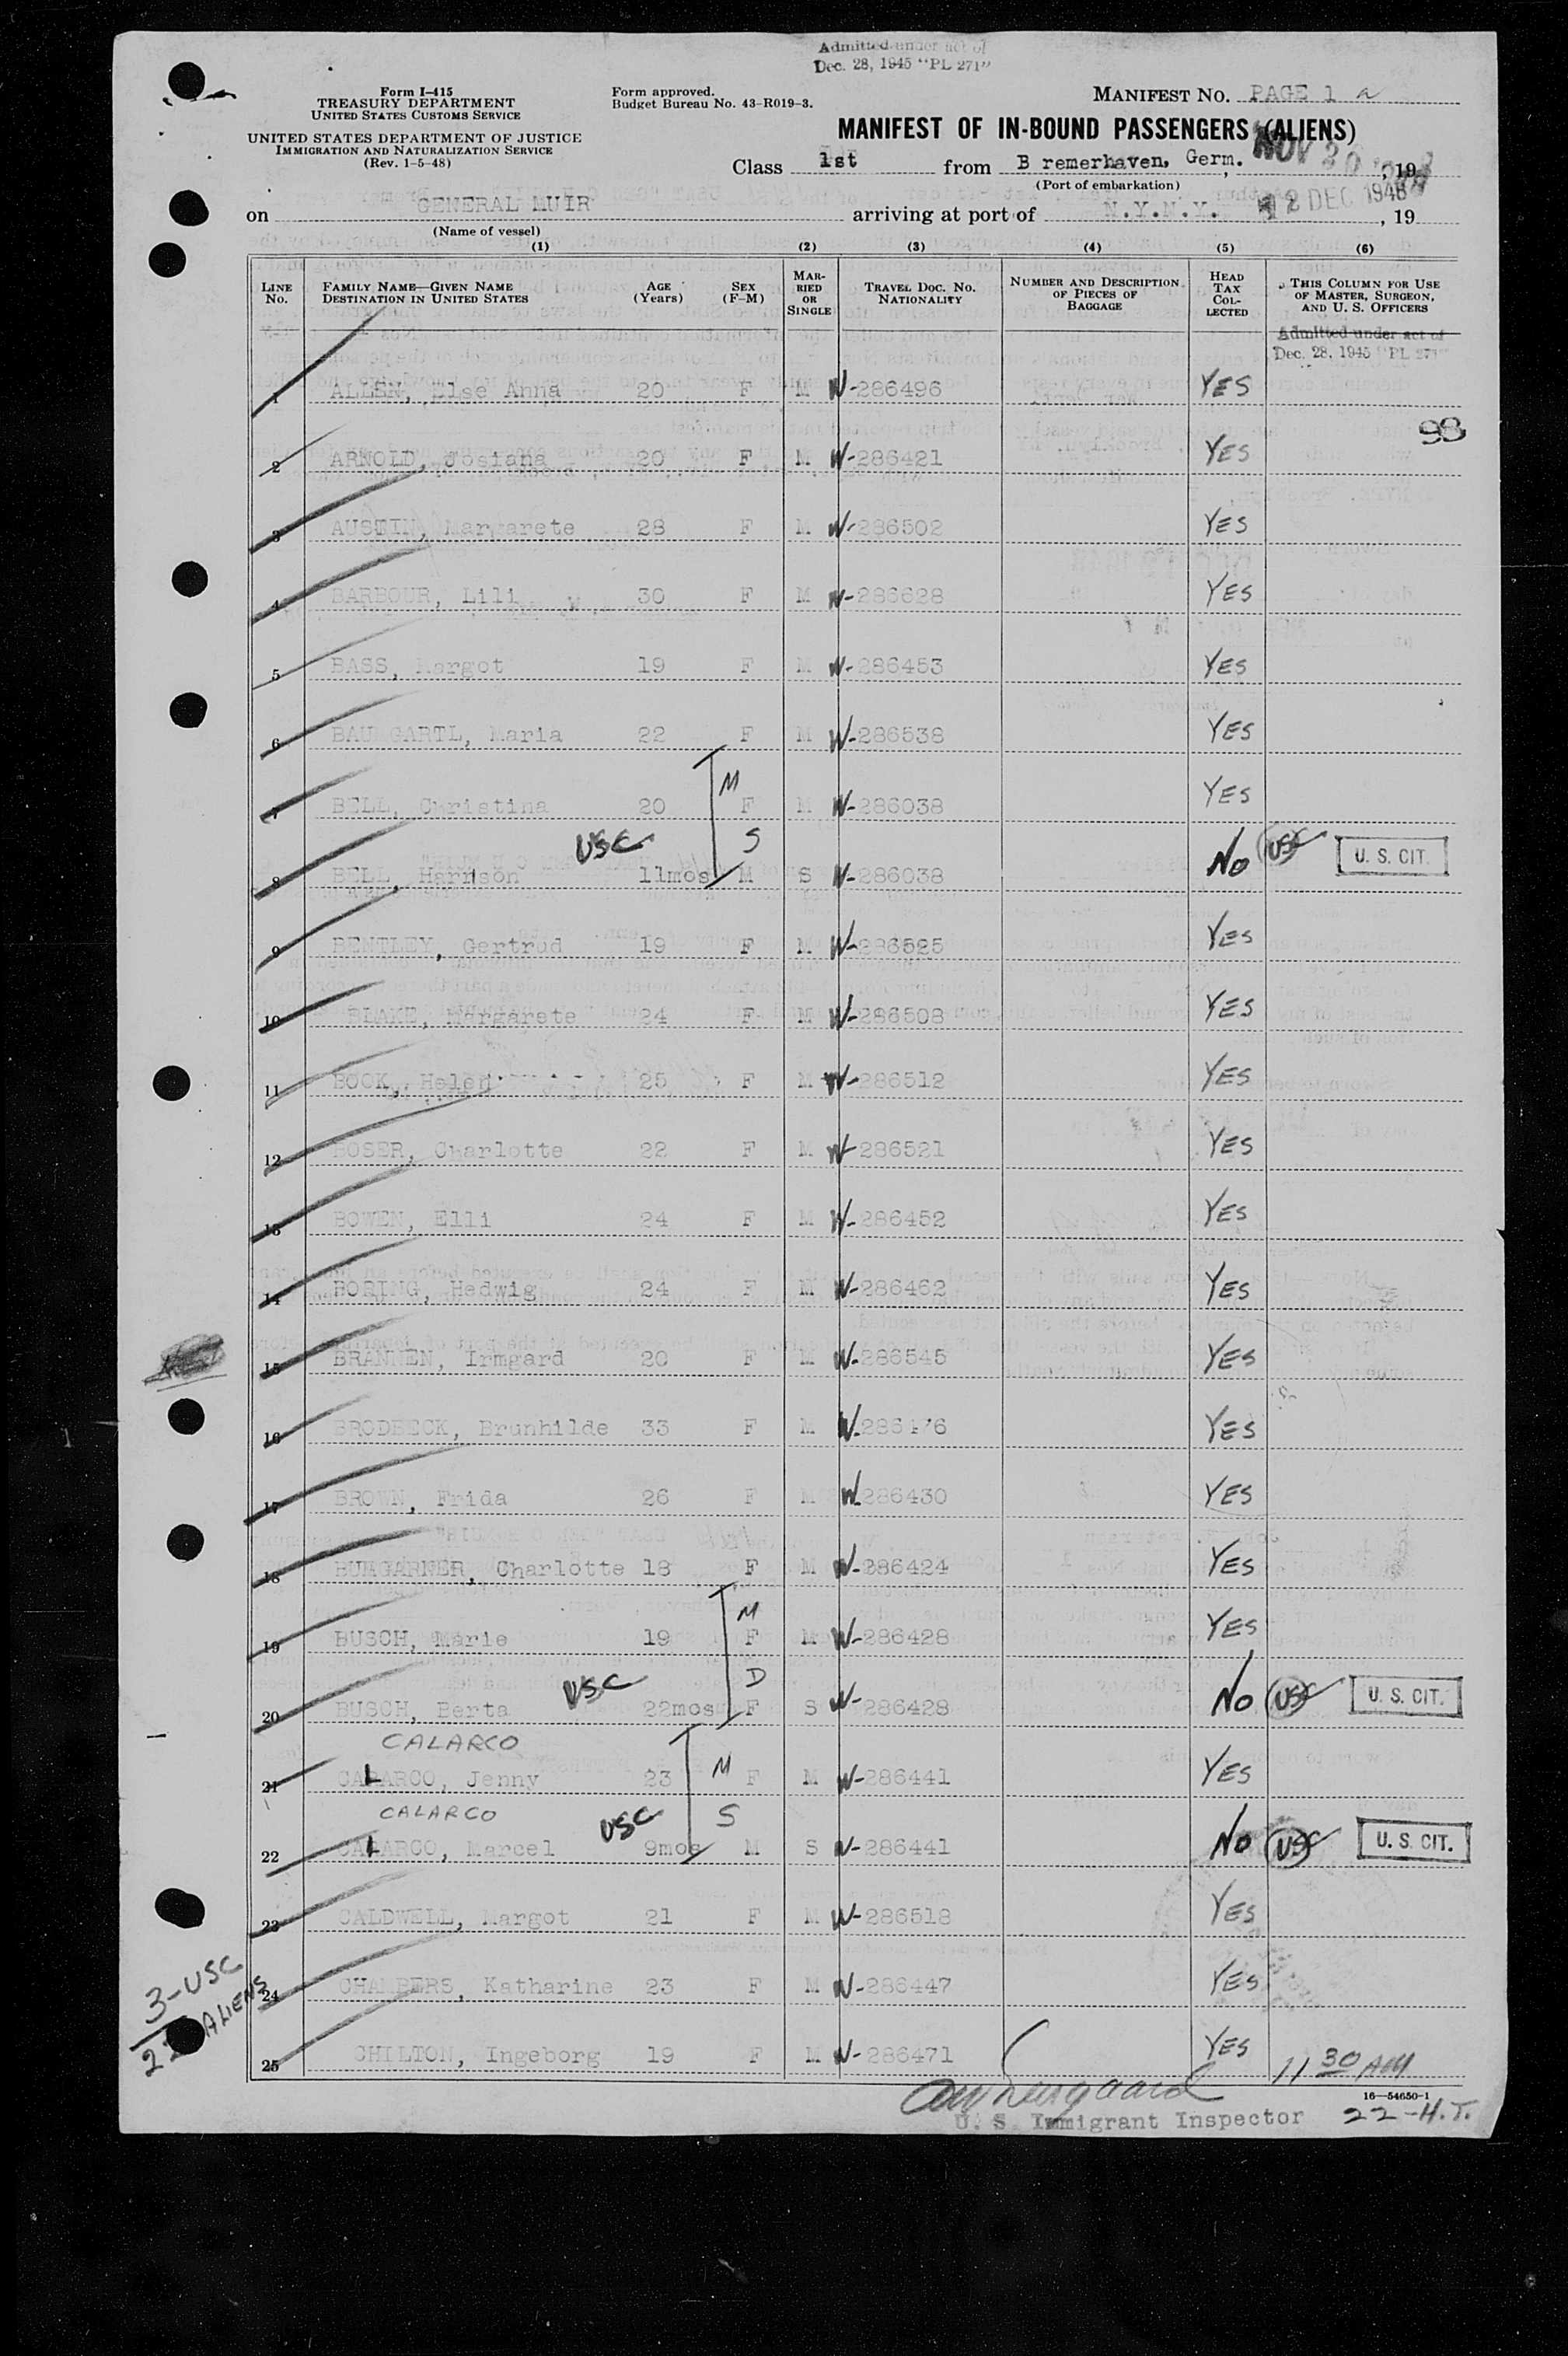 Admitted under act of
Dec. 28, 1945 "PL 271"
Form I-415
TREASURY DEPARTMENT
UNITED STATES CUSTOMS SERVICE
UNITED STATES DEPARTMENT OF JUSTICE
IMMIGRATION AND NATURALIZATION SERVICE
(Rev. 1-5-48)
Form approved.
Budget Bureau No. 43-R019-3.
MANIFEST NO. PAGE 1 a
MANIFEST OF IN-BOUND PASSENGERS (ALIENS)
Class 1st from B remerhaven, Germ. NOV 30, 19
(Port of embarkation)
on GENERAL MUIR arriving at port of N.Y.N.Y. 12 DEC 1948, 19
(Name of vessel)
(1) (2) (3) (4) (5) (6)
LINE NO. FAMILY NAME—GIVEN NAME DESTINATION IN UNITED STATES AGE (Years) SEX (F-M) MARRIED OR SINGLE TRAVEL DOC. NO. NATIONALITY NUMBER AND DESCRIPTION OF PIECES OF BAGGAGE HEAD TAX COLLECTED THIS COLUMN FOR USE OF MASTER, SURGEON, AND U. S. OFFICERS
Admitted under act of
Dec. 28, 1945 "PL 271"
1 ALLEN, Else Anna 20 F M W-286496 YES
98
2 ARNOLD, Josiana 20 F M W-286421 YES
3 AUSTIN, Margarete 28 F M W-286502 YES
4 BARBOUR, Lili 30 F M W-286628 YES
5 BASS, Margot 19 F M W-286453 YES
6 BAUMGARTL, Maria 22 F M W-286538 YES
M
7 BELL, Christina 20 F M W-286038 YES
USC S
8 BELL, Harrison 11mos M S W-286038 NO USC U. S. CIT.
9 BENTLEY, Gertrud 19 F M W-286525 YES
10 BLAKE, Margarete 24 F M W-286508 YES
11 BOOK, Helen 25 F M W-286512 YES
12 BOSER, Charlotte 22 F M W-286521 YES
13 BOWEN, Elli 24 F M W-286452 YES
14 BORING, Hedwig 24 F M W-286462 YES
15 BRANNEN, Irmgard 20 F M W-286545 YES
16 BRODBECK, Brunhilde 33 F M W- YES
17 BROWN, Frida 26 F M W-286430 YES
18 BUMGARNER, Charlotte 18 F M W-286424 YES
M
19 BUSCH, Marie 19 F M W-286428 YES
USC D
20 BUSCH, Berta 22mos F S W-286428 NO USC U. S. CIT.
CALARCO
21 CALARCO, Jenny 23 M F M W-286441 YES
CALARCO USC S
22 CALARCO, Marcel 9mos M S W-286441 NO USC U. S. CIT.
23 CALDWELL, Margot 21 F M W-286518 YES
24 CHAMBERS, Katharine 23 F M W-286447 YES
25 CHILTON, Ingeborg 19 F M W-286471 YES
3-USC
ALIENS
11 30 AM
U. S. Immigrant Inspector
16—54650-1
22-H.T.